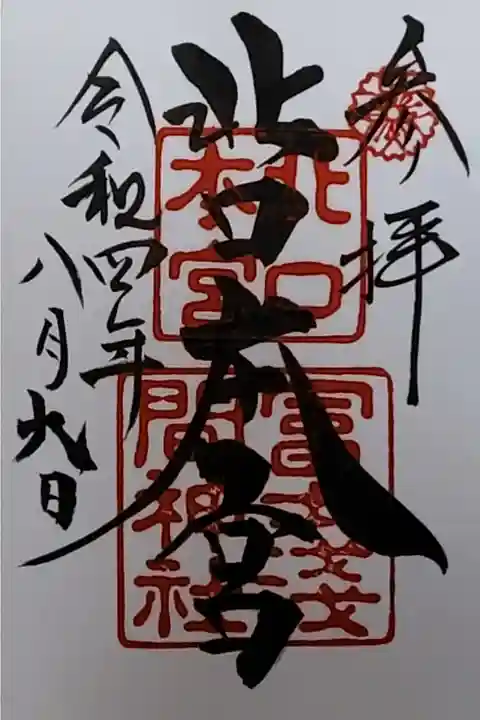 参拝
北口本宮
北口
本宮
冨士浅
間神社
令和四年
八月九日